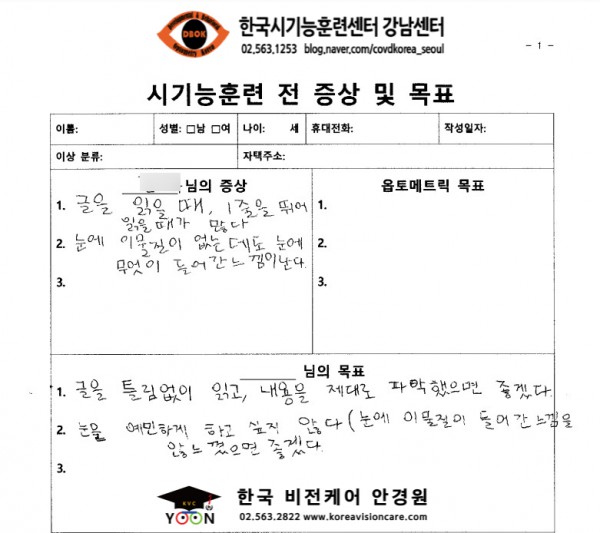 DBOK
한국시기능훈련센터 강남센터
02.563.1253 blog.naver.com/covdkorea_seoul
- 1 -
시기능훈련 전 증상 및 목표
이름: 성별: □남 □여 나이: 세 휴대전화: 작성일자:
이상 분류: 자택주소:
님의 증상
1. 글을 읽을 때, 1줄을 뛰어
읽을때가 많다
2. 눈에 이물질이 없는데도 눈에
무엇이 들어간느낌이난다.
3.
옵토메트릭 목표
1.
2.
3.
님의 목표
1. 글을 틀림없이 읽고, 내용을 제대로 파악했으면 좋겠다.
2. 눈을 예민하게 하고 싶지 않다 (눈에 이물질이 들어간느낌을
않느꼈으면 좋겠다.
3.
KVC
YOON
한국 비전케어 안경원
02.563.2822 www.koreavisioncare.com